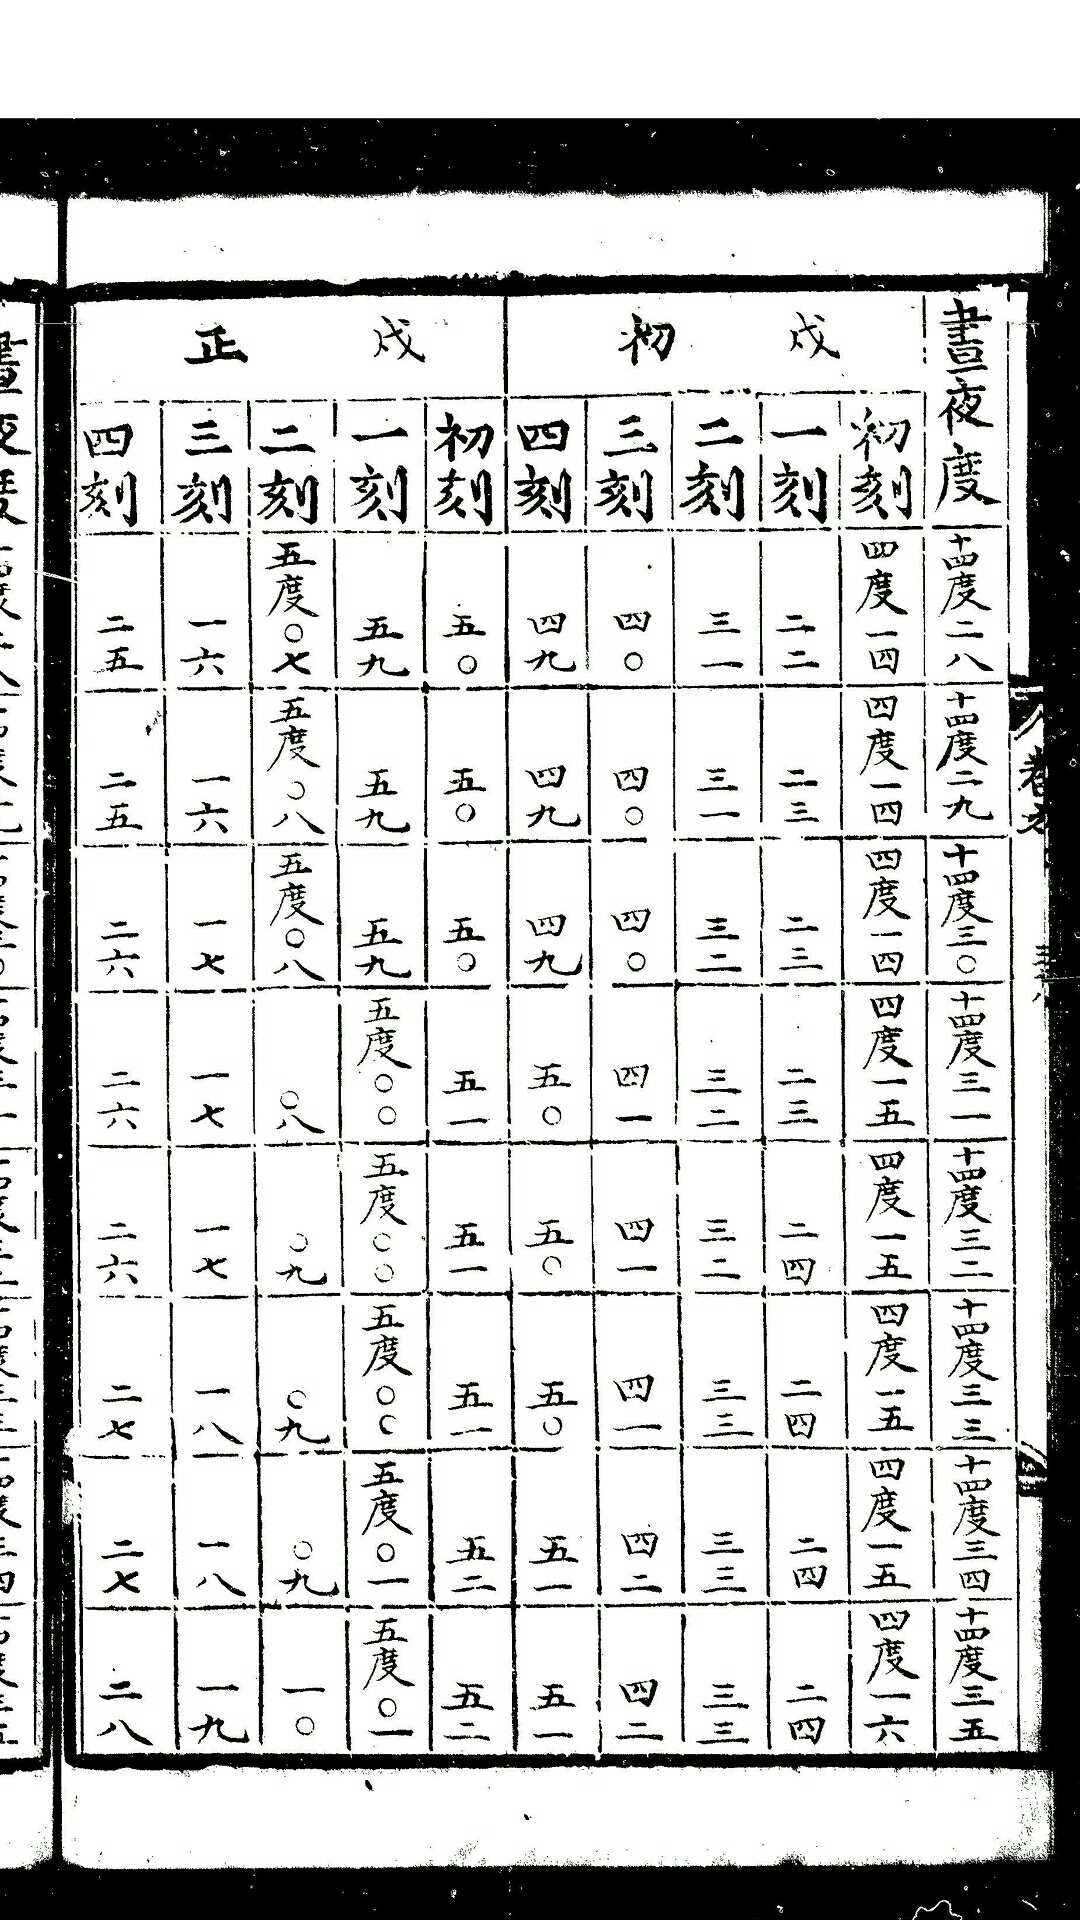 晝夜度 戌初 戌正
初刻 一刻 二刻 三刻 四刻 初刻 一刻 二刻 三刻 四刻
十四度二八 四度一四 二二 三一 四〇 四九 五〇 五九 五度〇七 一六 二五
十四度二九 四度一四 二三 三一 四〇 四九 五〇 五九 五度〇八 一六 二五
十四度三〇 四度一四 二三 三二 四〇 四九 五〇 五九 五度〇八 一七 二六
十四度三一 四度一五 二三 三二 四一 五〇 五一 五度〇〇 〇八 一七 二六
十四度三二 四度一五 二四 三二 四一 五〇 五一 五度〇〇 〇九 一七 二六
十四度三三 四度一五 二四 三三 四一 五〇 五一 五度〇〇 〇九 一八 二七
十四度三四 四度一五 二四 三三 四二 五一 五二 五度〇一 〇九 一八 二七
十四度三五 四度一六 二四 三三 四二 五一 五二 五度〇一 一〇 一九 二八